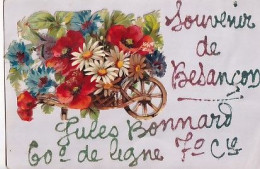 Souvenir
de
Besançon
Jules Bonnard
60e de ligne 7e Cie